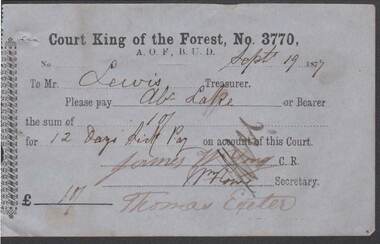 Court King of the Forest, No. 3770,
A. O. F., B. U. D.
No Sept 19 1877
To Mr. Lewis Treasurer.
Please pay Ab. Lake or Bearer
the sum of
for 12 Days Sick Pay on account of this Court.
James C. R.
Secretary.
£
Thomas Exeter